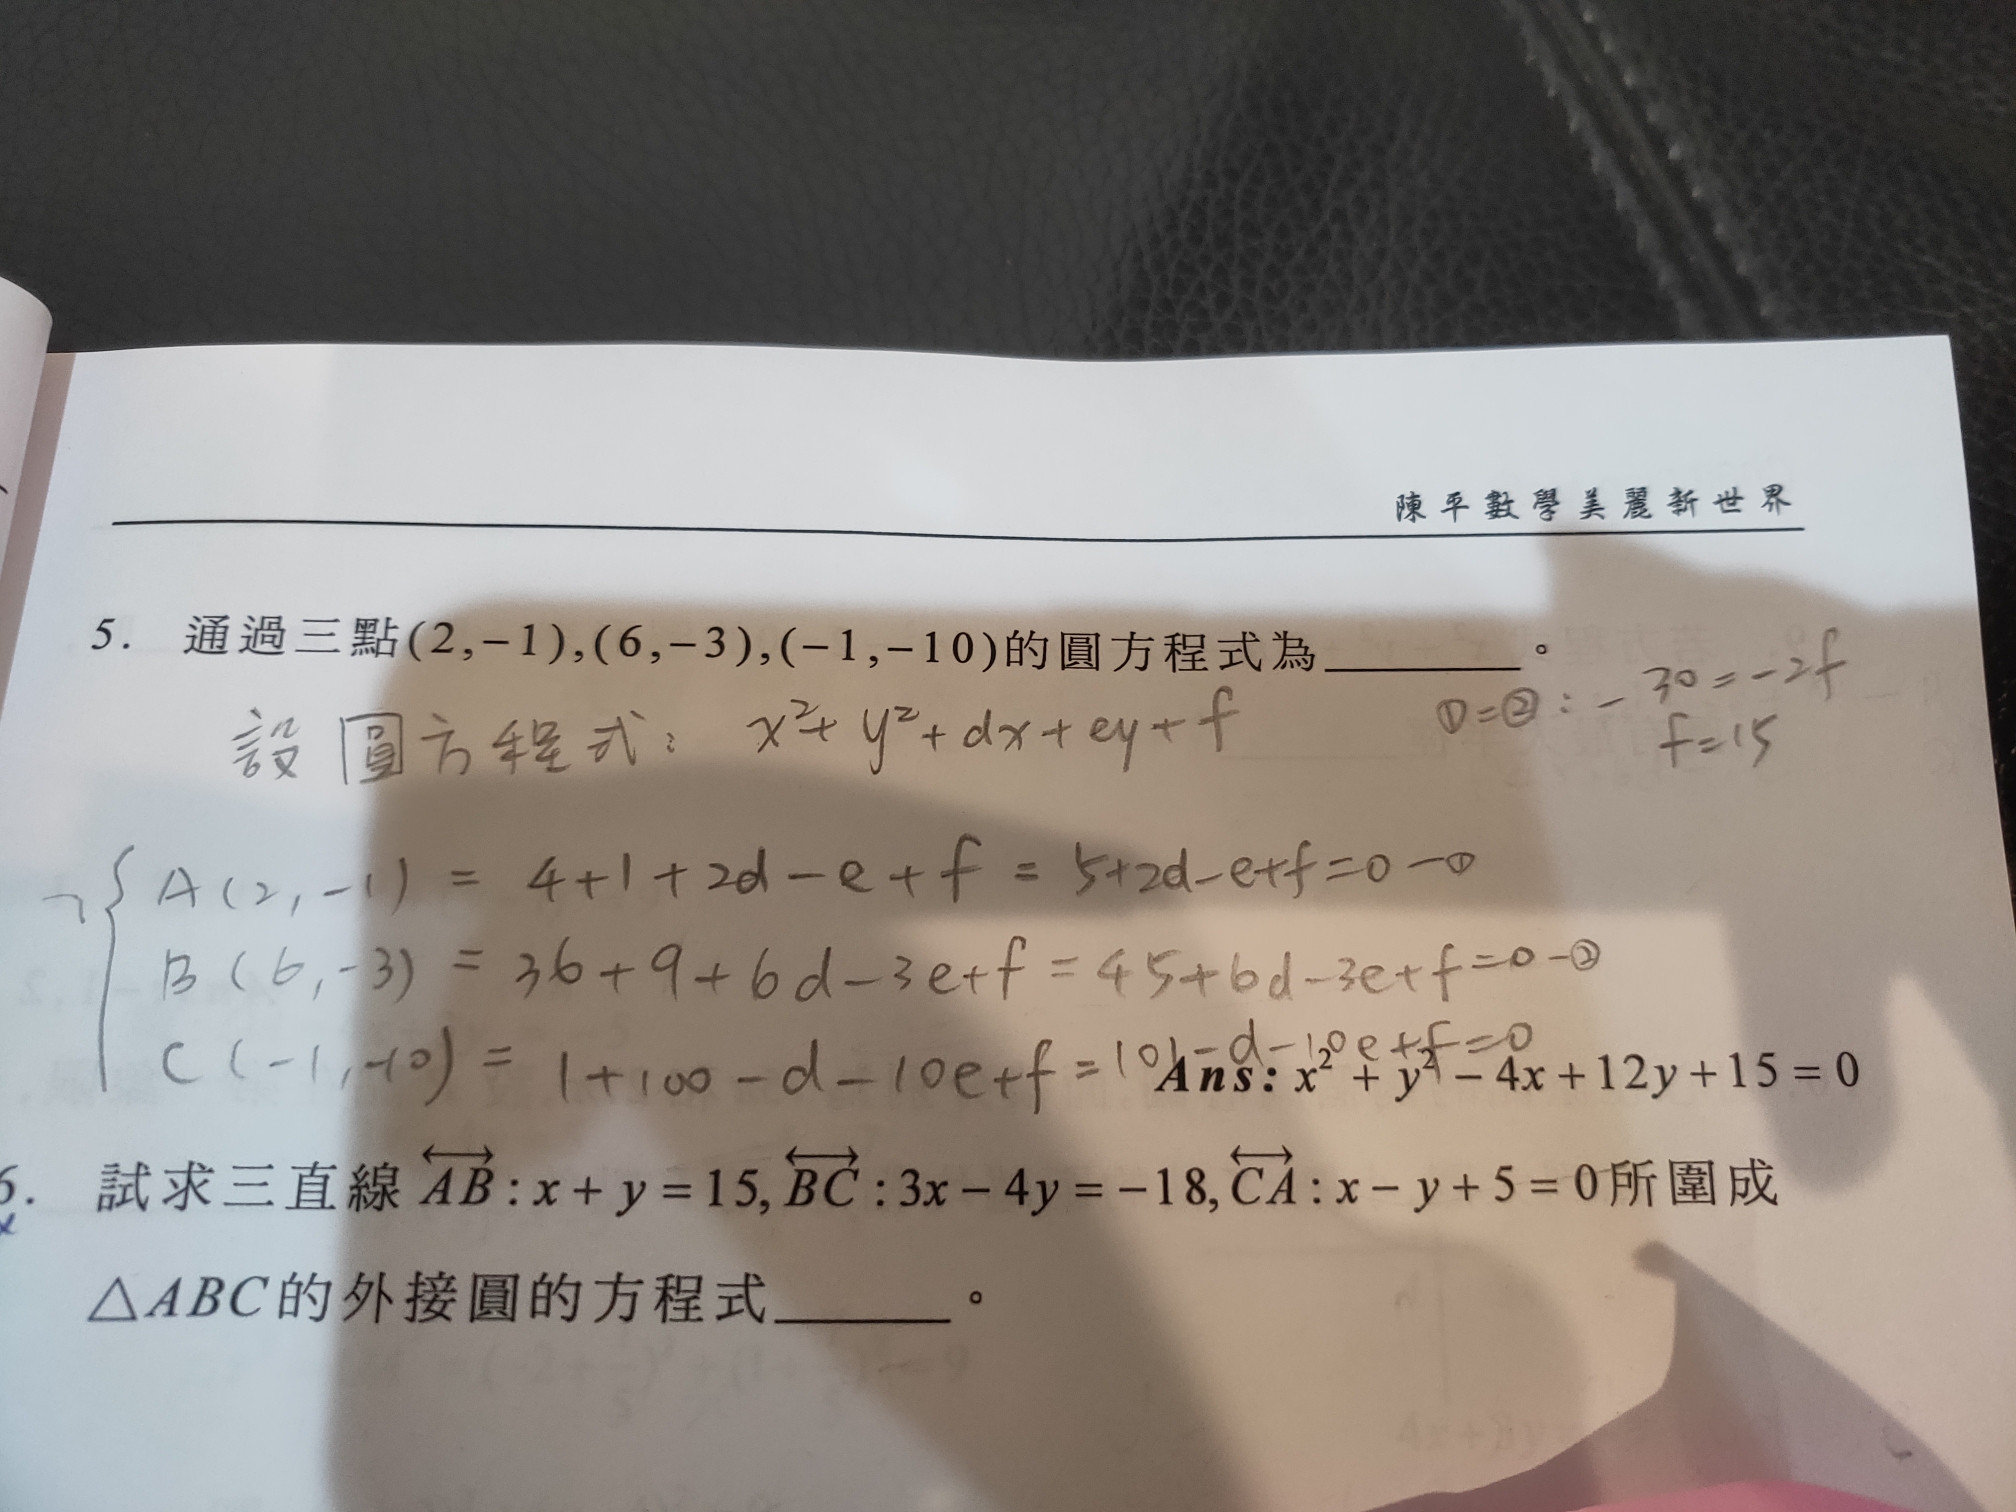 陳平數學美麗新世界
5. 通過三點(2,−1),(6,−3),(−1,−10)的圓方程式為______。
①=②: −30=−2f
f=15
設圓方程式: x²+y²+dx+ey+f
A(2,−1) = 4+1+2d−e+f = 5+2d−e+f=0−①
B(6,−3) = 36+9+6d−3e+f = 45+6d−3e+f=0−②
C(−1,−10) = 1+100−d−10e+f = 101−d−10e+f=0
Ans: x²+y²−4x+12y+15=0
6. 試求三直線 AB:x+y=15, BC:3x−4y=−18, CA:x−y+5=0所圍成
△ABC的外接圓的方程式______。